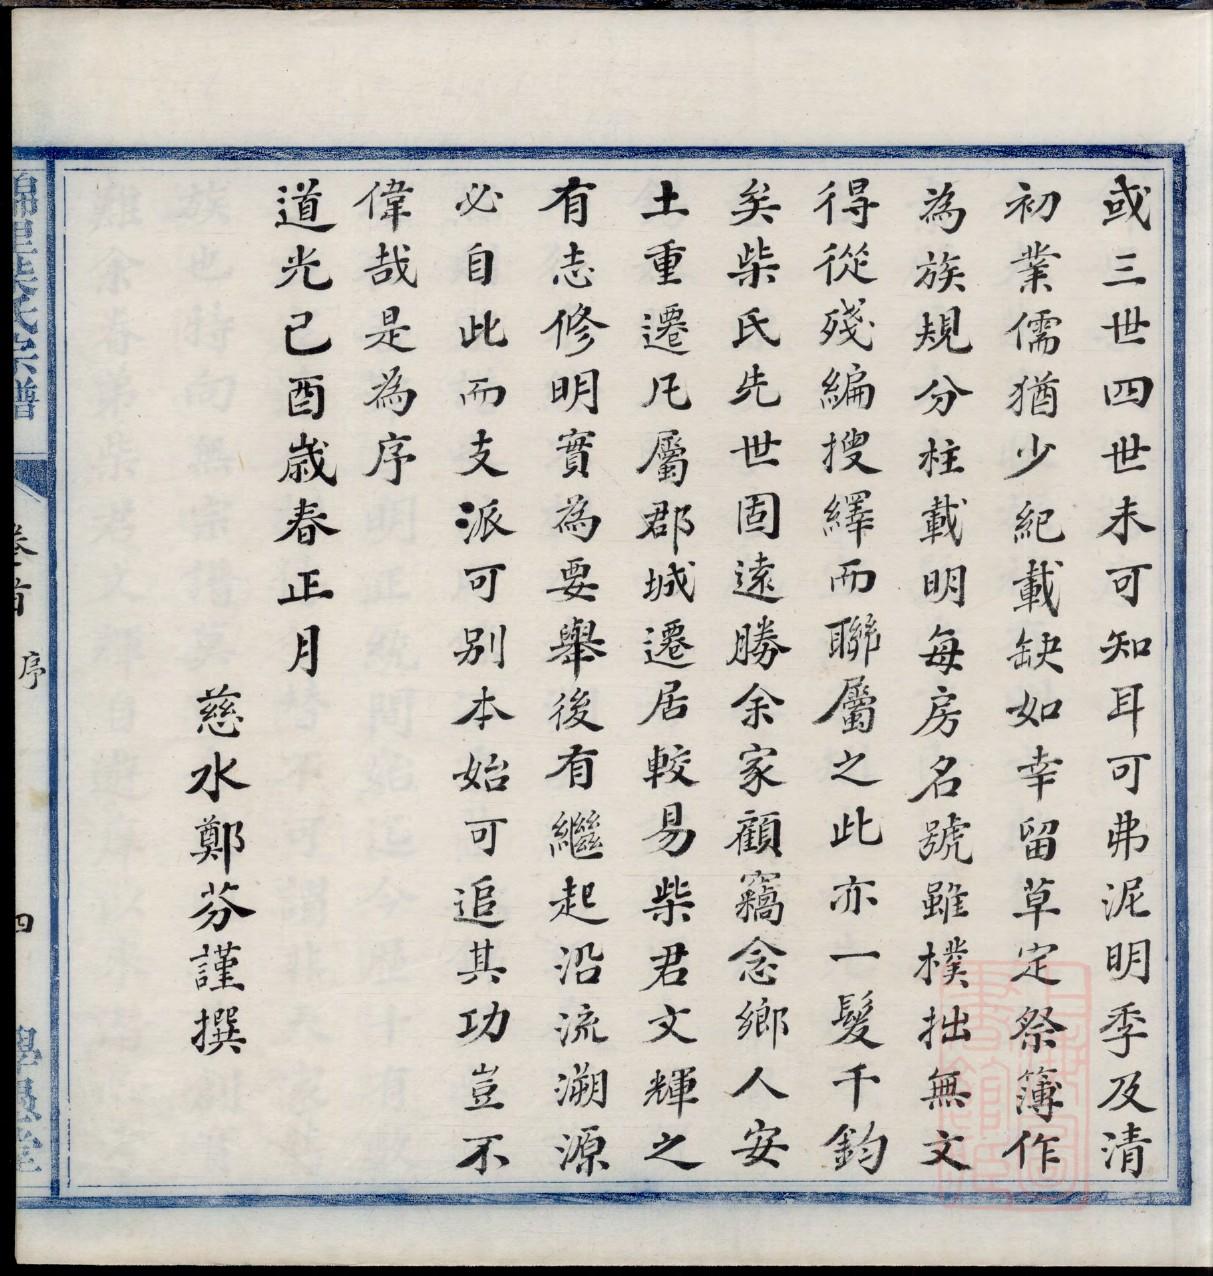 或三世四世未可知耳可弗泥明季及清
初業儒猶少紀載缺如幸留草定祭簿作
為族規分柱載明每房名號雖樸拙無文
得從殘編搜繹而聯屬之此亦一髮千鈞
矣柴氏先世固遠勝余家顧竊念鄉人安
土重遷凡屬郡城遷居較易柴君文輝之
有志修明實為要舉後有繼起沿流溯源
必自此而支派可別本始可追其功豈不
偉哉是為序
道光己酉歲春正月
慈水鄭芬謹撰
柴氏宗譜
卷首
序
四